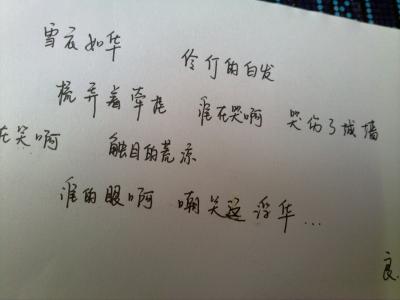 雪衣如华 伶仃的白发
梳弄着牵挂 谁在哭啊 哭伤了城墙
在笑啊 触目的荒凉
谁的眼啊 嘲笑这浮华...
良